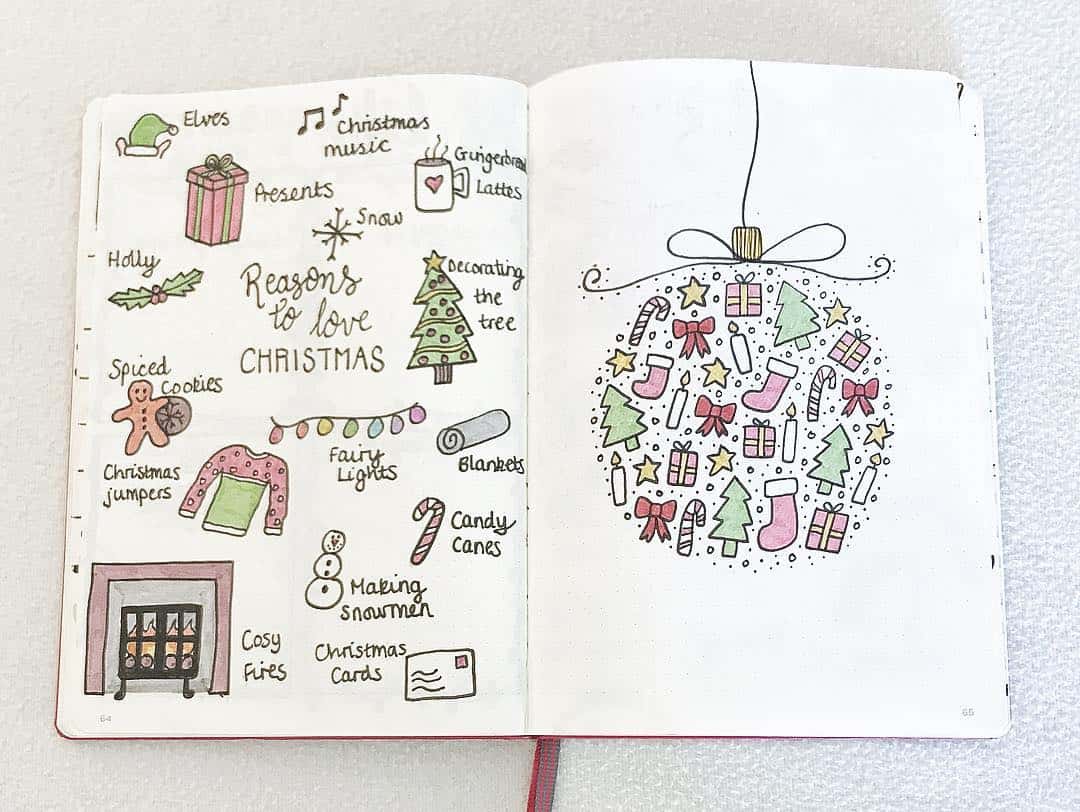 Elves
Christmas
music
Gingerbread
Lattes
Presents
Snow
Holly
Reasons
to love
CHRISTMAS
Decorating
the
tree
Spiced
Cookies
Fairy
Lights
Blankets
Christmas
jumpers
Candy
Canes
Making
Snowmen
Cosy
Fires
Christmas
Cards
64
65